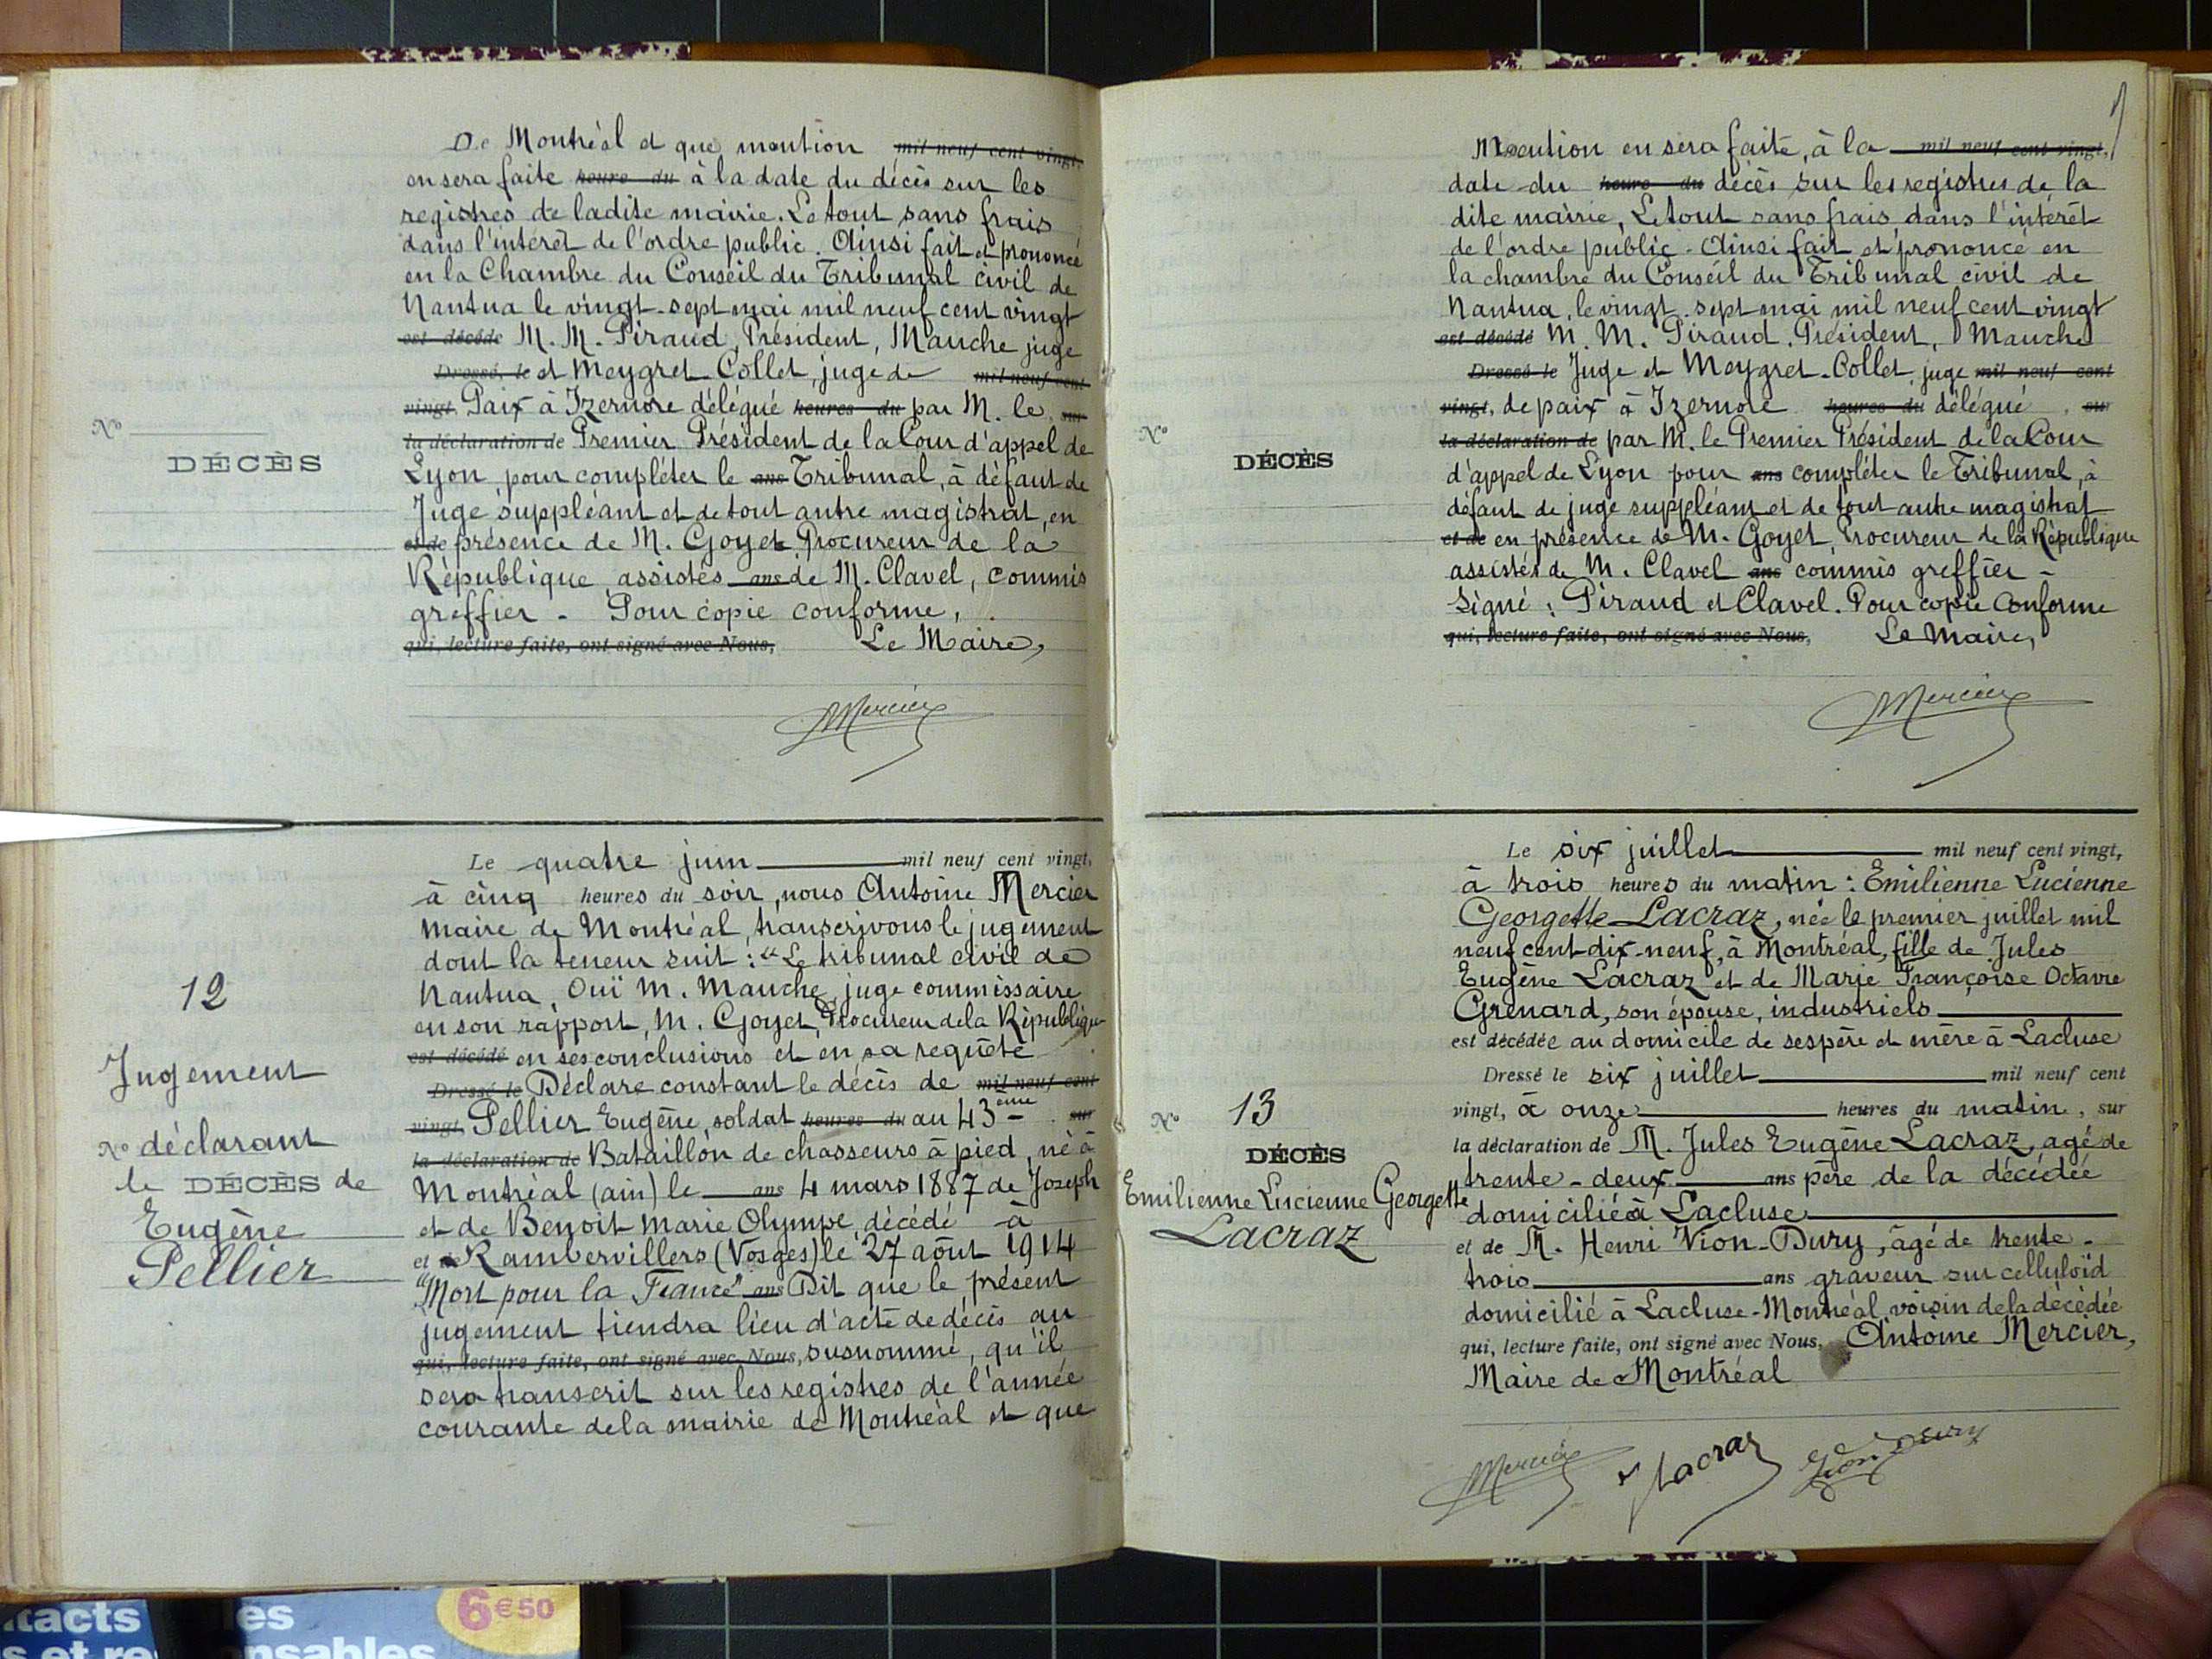 De Montréal et que mention mil neuf cent vingt,
en sera faite heure du à la date du décès sur les
registres de ladite mairie. Le tout sans frais
dans l'intérêt de l'ordre public. Ainsi fait et prononcé
en la Chambre du Conseil du Tribunal civil de
Nantua le vingt-sept mai mil neuf cent vingt
est décédé M. M. Piraud, Président, Mauche juge
Dressé, le et Meygret-Collet, juge de mil neuf cent
vingt, Paix à Izernore délégué heures du par M. le sur
la déclaration de Premier Président de la Cour d'appel de
Nº
DÉCÈS
Lyon pour compléter le ans Tribunal, à défaut de
Juge suppléant et de tout autre magistrat, en
et de présence de M. Goyet Procureur de la
République assistés ans de M. Clavel, commis
greffier - Pour copie conforme,
qui, lecture faite, ont signé avec Nous, Le Maire,
Mercier
Le quatre juin mil neuf cent vingt,
à cinq heures du soir, nous Antoine Mercier
maire de Montréal, transcrivons le jugement
dont la teneur suit : "Le tribunal civil de
Nantua, Ouï M. Mauche, juge commissaire
en son rapport, M. Goyet, Procureur de la République
est décédé en ses conclusions et en sa requête
Dressé le Déclare constant le décès de mil neuf cent
vingt, Pellier Eugène, soldat heures du au 43ème sur
la déclaration de Bataillon de chasseurs à pied, né à
Montréal (ain) le ans 4 mars 1887 de Joseph
et de Benoit Marie Olympe, décédé à
et de Rambervillers (Vosges) le 27 août 1914
"Mort pour la France" ans Dit que le présent
jugement tiendra lieu d'acte de décès au
qui, lecture faite, ont signé avec Nous, susnommé, qu'il
sera transcrit sur les registres de l'année
courante de la mairie de Montréal et que
12
Jugement
Nº déclarant
le DÉCÈS de
Eugène
Pellier
Mention en sera faite, à la mil neuf cent vingt,
date du heure du décès sur les registres de la
dite mairie, Le tout sans frais dans l'intérêt
de l'ordre public - Ainsi fait et prononcé en
la chambre du Conseil du Tribunal civil de
Nantua, le vingt-sept mai mil neuf cent vingt
est décédé M. M. Piraud, Président, Mauche
Dressé le Juge et Meygret-Collet, juge mil neuf cent
vingt, de paix à Izernore heures du délégué, sur
la déclaration de par M. le Premier Président de la Cour
d'appel de Lyon pour ans compléter le Tribunal, à
défaut de juge suppléant et de tout autre magistrat
et de en présence de M. Goyet, Procureur de la République
assistés de M. Clavel ans commis greffier -
Signé : Piraud et Clavel. Pour copie Conforme
qui, lecture faite, ont signé avec Nous, Le Maire,
Mercier
Nº
DÉCÈS
Le six juillet mil neuf cent vingt,
à trois heures du matin : Emilienne Lucienne
Georgette Lacraz, née le premier juillet mil
neuf cent-dix-neuf, à Montréal, fille de Jules
Eugène Lacraz et de Marie Françoise Octavie
Grenard, son épouse, industriels
est décédée au domicile de ses père et mère à Lacluse
Dressé le six juillet mil neuf cent
vingt, à onze heures du matin, sur
la déclaration de M. Jules Eugène Lacraz, agé de
trente-deux ans père de la décédée
domicilié à Lacluse
et de M. Henri Vion-Dury, âgé de trente-
trois ans graveur sur celluloïd
domicilié à Lacluse-Montréal, voisin de la décédée
qui, lecture faite, ont signé avec Nous, Antoine Mercier,
Maire de Montréal
Mercier Lacraz Vion Dury
Nº 13
DÉCÈS
Emilienne Lucienne Georgette
Lacraz
6€50